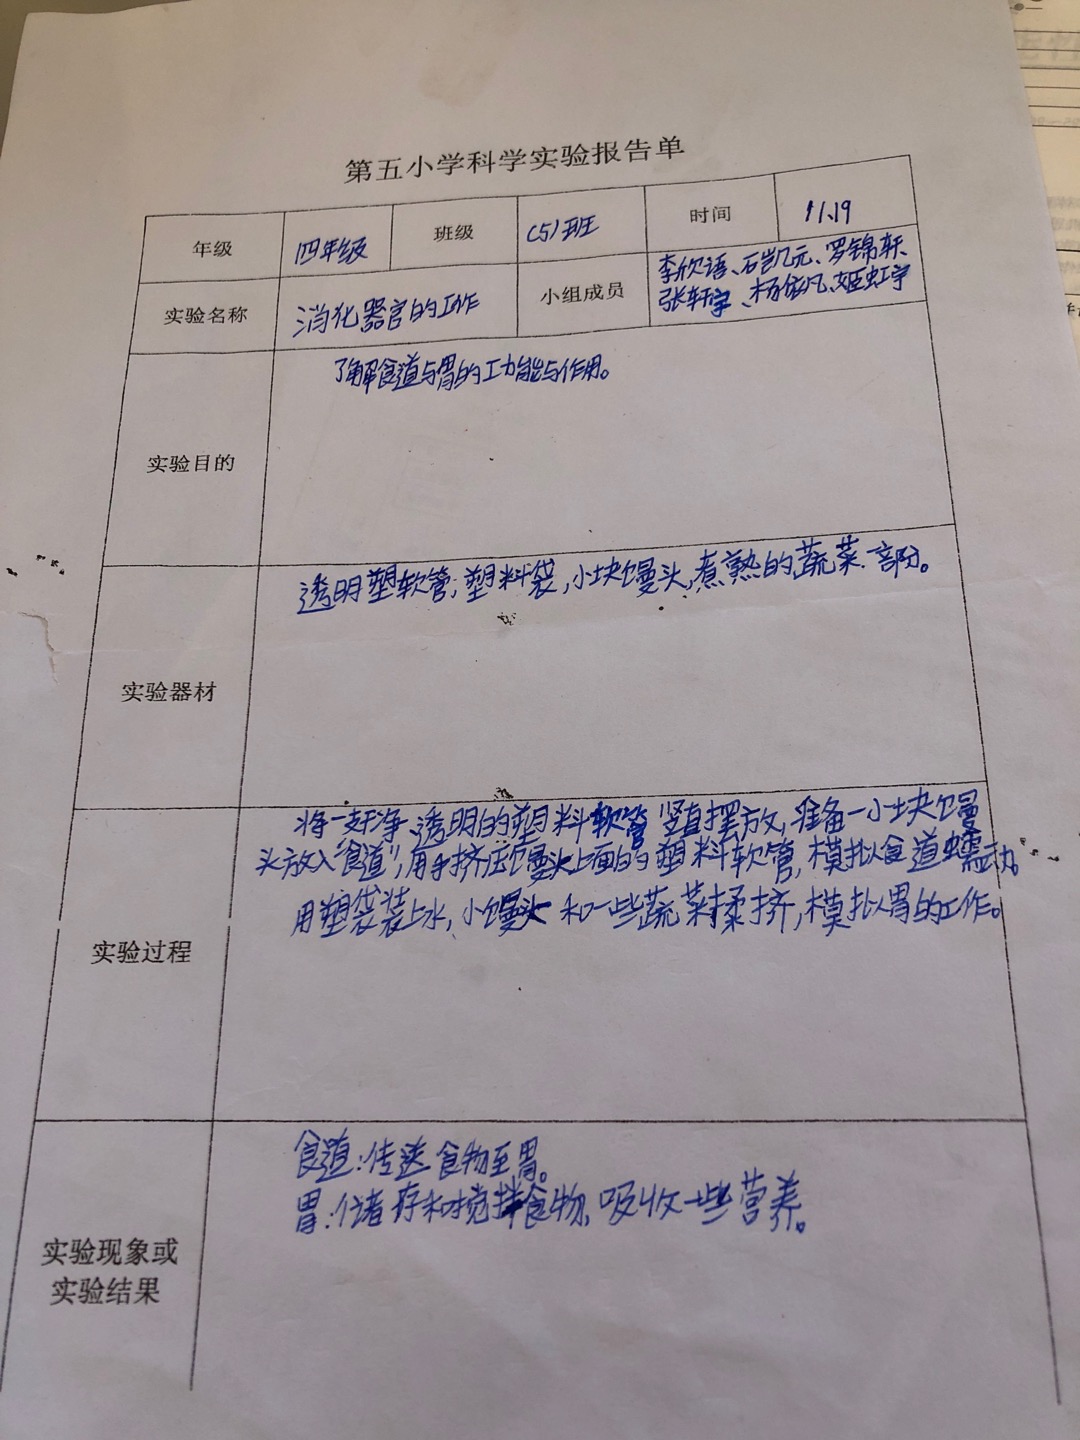 第五小学科学实验报告单
年级 四年级 班级 (5)班 时间 11.19
实验名称 消化器官的工作 小组成员 李欣语、石凯元、罗锦轩、
张轩宇、杨依凡、姬虹宇
实验目的 了解食道与胃的工力能与作用。
实验器材 透明塑软管,塑料袋,小块馒头,煮熟的蔬菜一部份。
将一支干净、透明的塑料软管竖直摆放,准备一小块馒
头放入“食道”,用手挤压馒头上面的塑料软管,模拟食道蠕动。
用塑袋装上水,小馒头和一些蔬菜揉挤,模拟胃的工作。
实验过程
食道:传送食物至胃。
胃:储存和搅拌食物,吸收一些营养。
实验现象或
实验结果